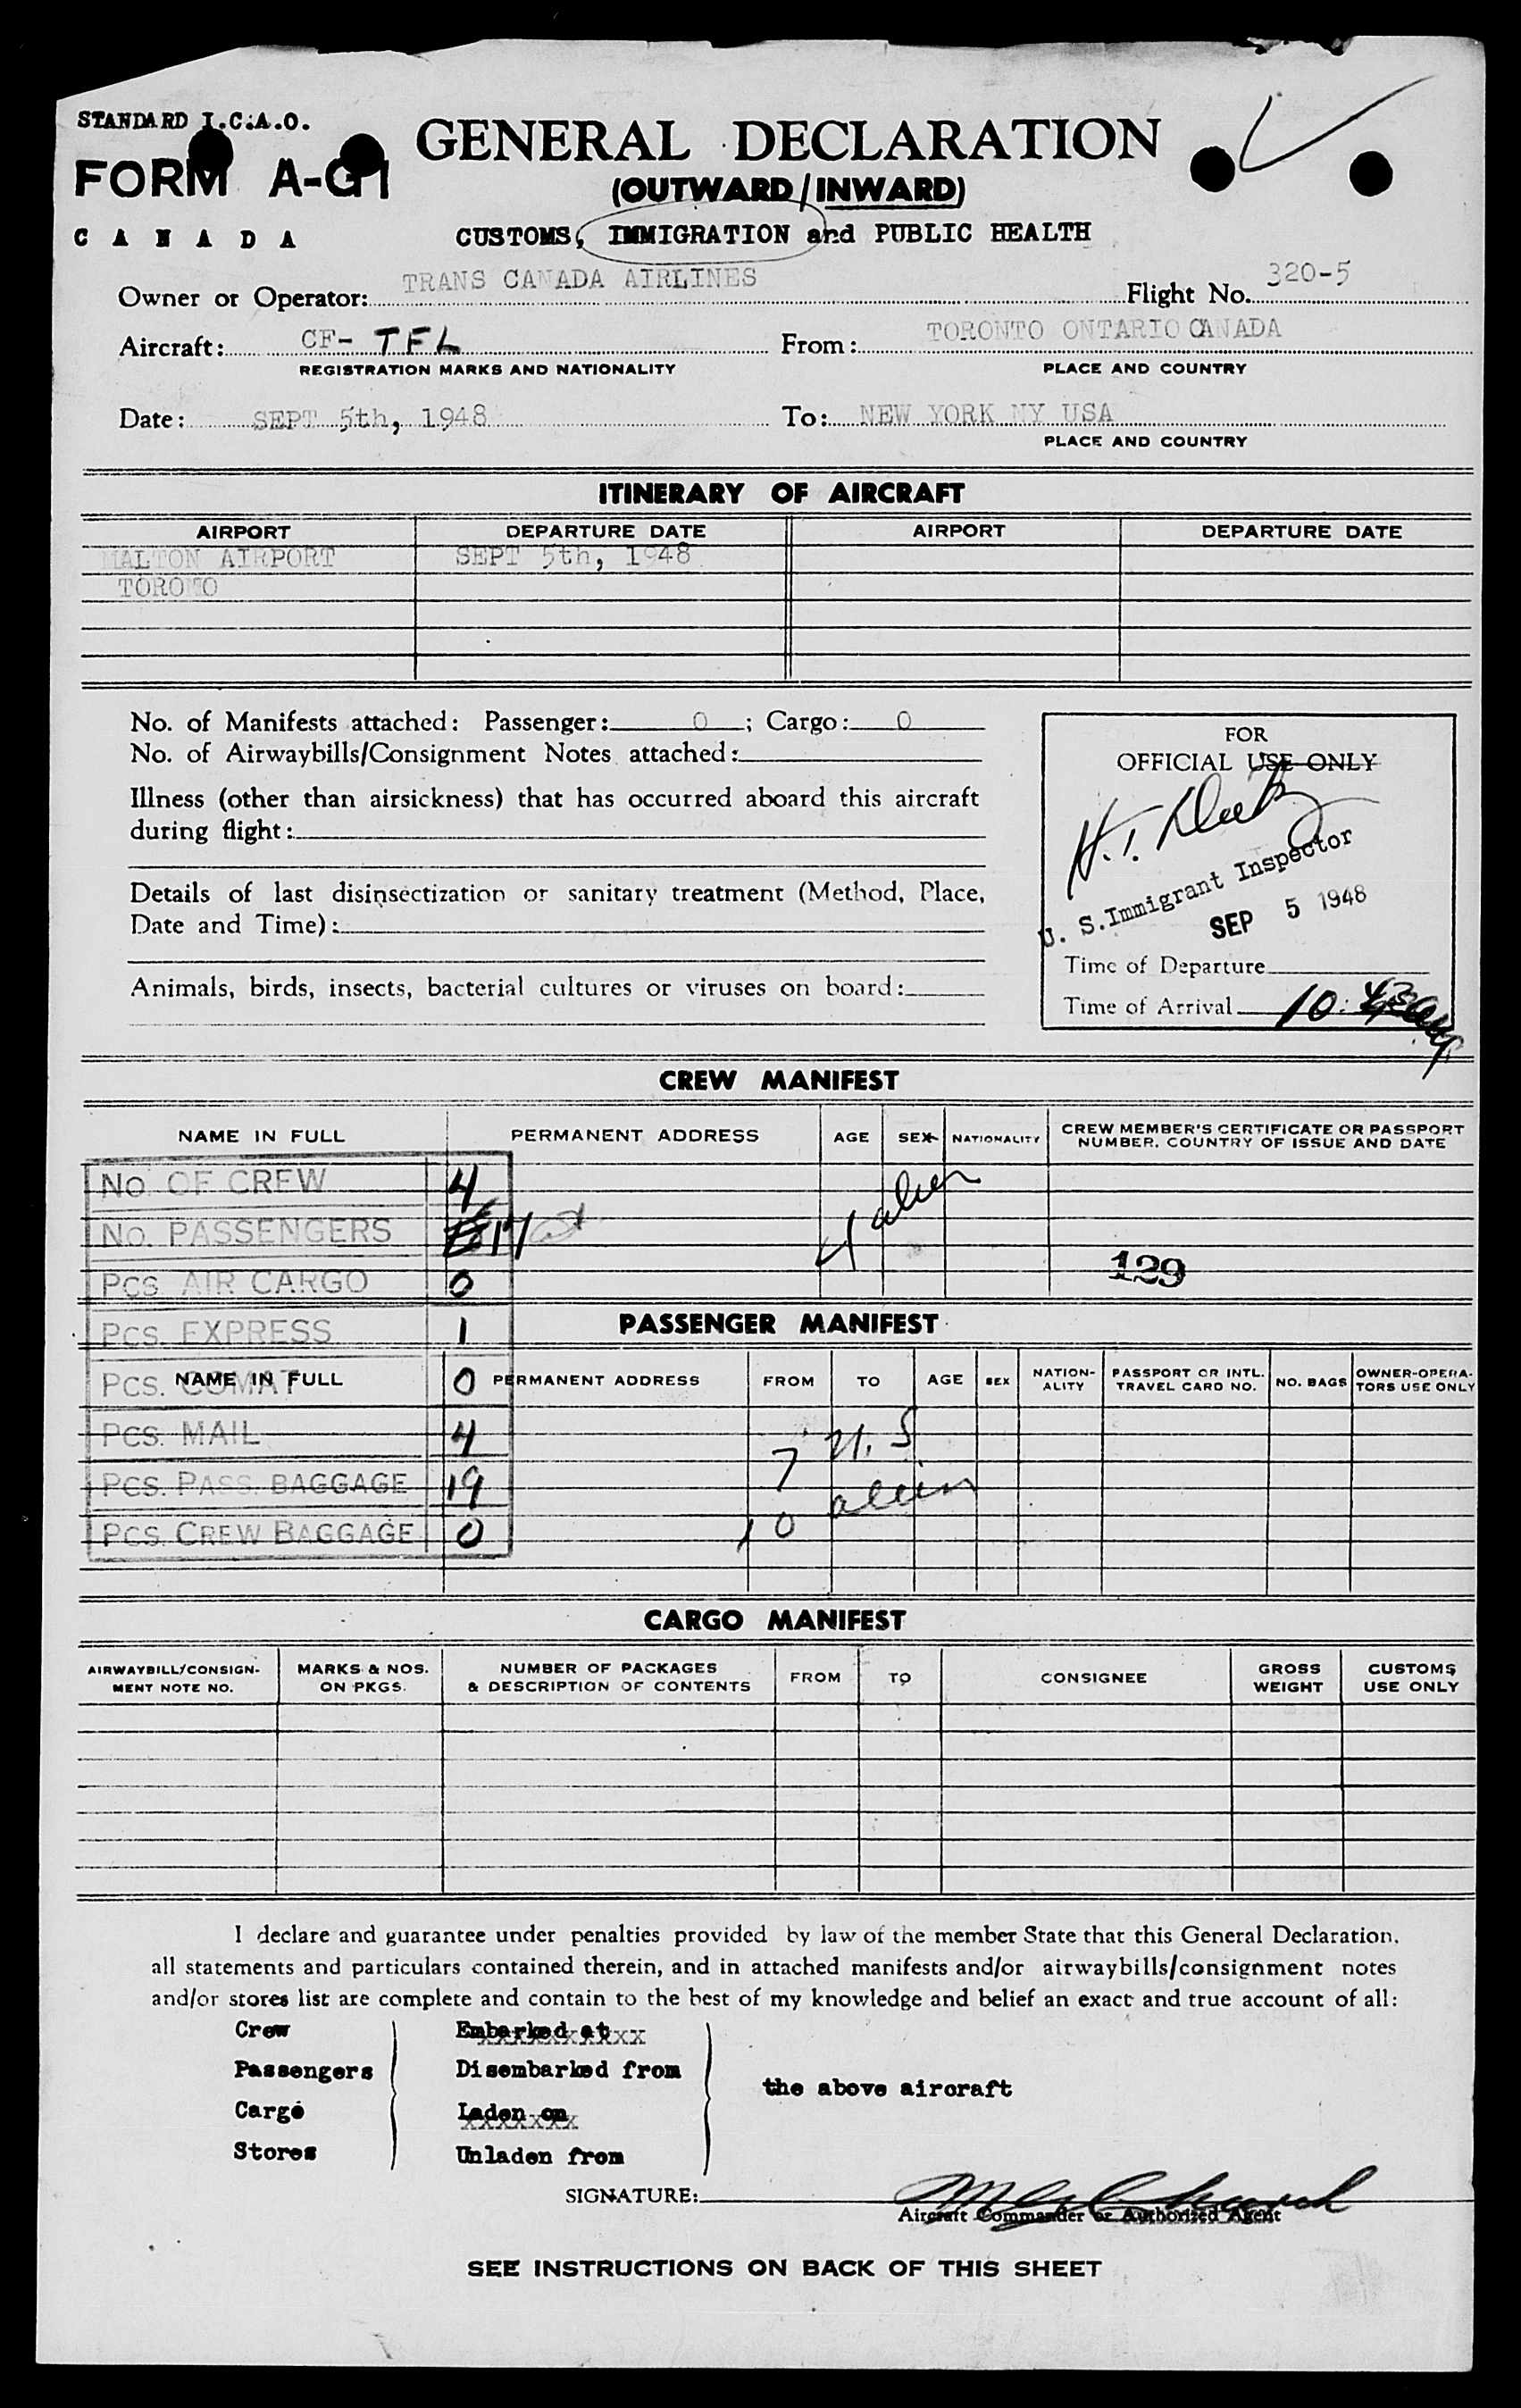 STANDARD I.C.A.O.
FORM A-G1
CANADA
GENERAL DECLARATION
(OUTWARD/INWARD)
CUSTOMS, IMMIGRATION and PUBLIC HEALTH
Owner or Operator: TRANS CANADA AIRLINES Flight No. 320-5
Aircraft: CF- TFL From: TORONTO ONTARIO CANADA
REGISTRATION MARKS AND NATIONALITY PLACE AND COUNTRY
Date: SEPT 5th, 1948 To: NEW YORK NY USA
PLACE AND COUNTRY
ITINERARY OF AIRCRAFT
AIRPORT DEPARTURE DATE AIRPORT DEPARTURE DATE
MALTON AIRPORT SEPT 5th, 1948
TORONTO
No. of Manifests attached: Passenger: 0; Cargo: 0
No. of Airwaybills/Consignment Notes attached:
Illness (other than airsickness) that has occurred aboard this aircraft
during flight:
Details of last disinsectization or sanitary treatment (Method, Place,
Date and Time):
Animals, birds, insects, bacterial cultures or viruses on board:
FOR
OFFICIAL USE ONLY
H. T.
U. S. Immigrant Inspector
SEP 5 1948
Time of Departure
Time of Arrival 10:
CREW MANIFEST
NAME IN FULL PERMANENT ADDRESS AGE SEX NATIONALITY CREW MEMBER'S CERTIFICATE OR PASSPORT
NUMBER, COUNTRY OF ISSUE AND DATE
No. OF CREW 4
4 alien
No. PASSENGERS 17
Pcs. AIR CARGO 0
129
Pcs. EXPRESS 1
PASSENGER MANIFEST
Pcs. COMAT 0
NAME IN FULL PERMANENT ADDRESS FROM TO AGE SEX NATION-
ALITY PASSPORT OR INTL.
TRAVEL CARD NO. NO. BAGS OWNER-OPERA-
TORS USE ONLY
Pcs. MAIL 4
7 U.S
Pcs. PASS. BAGGAGE 19
10 alien
Pcs. CREW BAGGAGE 0
CARGO MANIFEST
AIRWAYBILL/CONSIGN-
MENT NOTE NO. MARKS & NOS.
ON PKGS. NUMBER OF PACKAGES
& DESCRIPTION OF CONTENTS FROM TO CONSIGNEE GROSS
WEIGHT CUSTOMS
USE ONLY
I declare and guarantee under penalties provided by law of the member State that this General Declaration,
all statements and particulars contained therein, and in attached manifests and/or airwaybills/consignment notes
and/or stores list are complete and contain to the best of my knowledge and belief an exact and true account of all:
Crew Embarked at
Passengers Disembarked from
the above aircraft
Cargo Laden on
Stores Unladen from
SIGNATURE:
Aircraft Commander or Authorized Agent
SEE INSTRUCTIONS ON BACK OF THIS SHEET